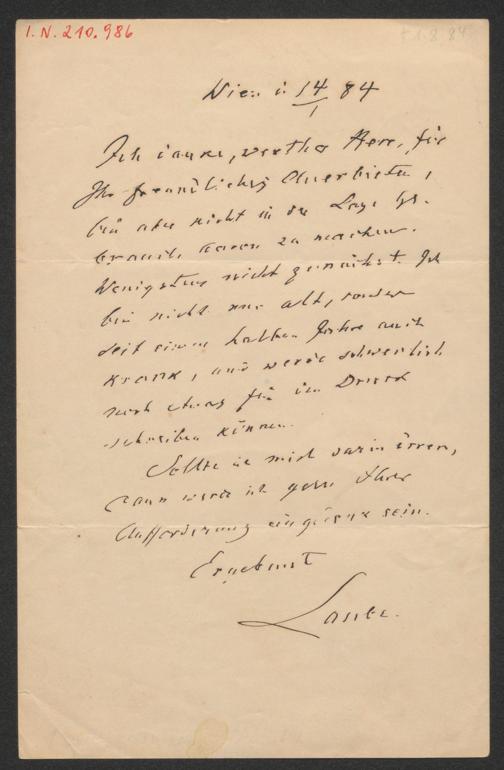 I. N. 210.986
† 1.8.84
Wien i 14/1 84
Ich danke, werther Herr, für
Ihr freundliches Anerbieten,
bin aber nicht in der Lage Ge-
brauch davon zu machen.
Wenigstens nicht zunächst. Ich
bin nicht nur alt, sondern
seit einem halben Jahre auch
krank, und werde schwerlich
noch etwas für den Druck
schreiben können.
Sollte ich mich darin irren,
dann werde ich gern Ihrer
Aufforderung eingedenk sein.
Ergebenst
Laube.